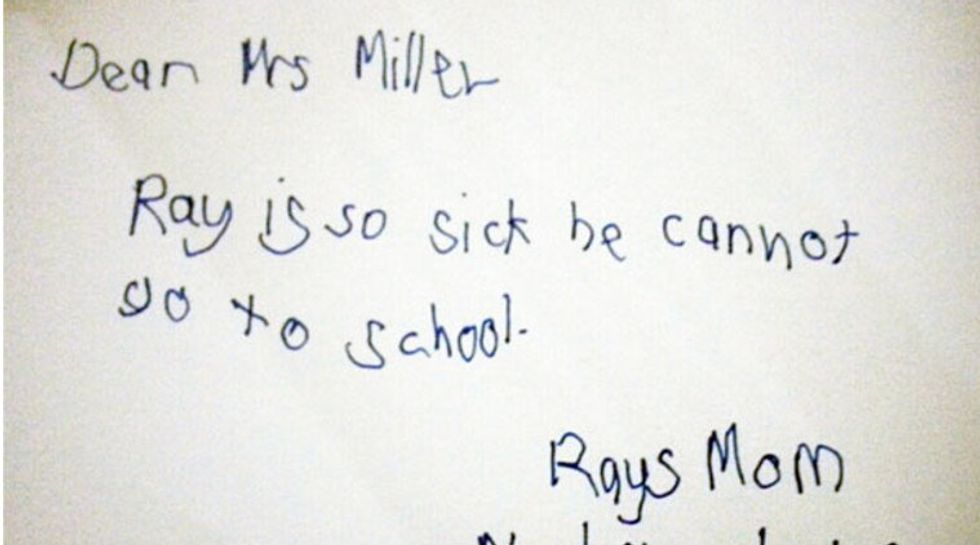 Dear Mrs Miller
Ray is so sick he cannot
go to school.
Rays Mom